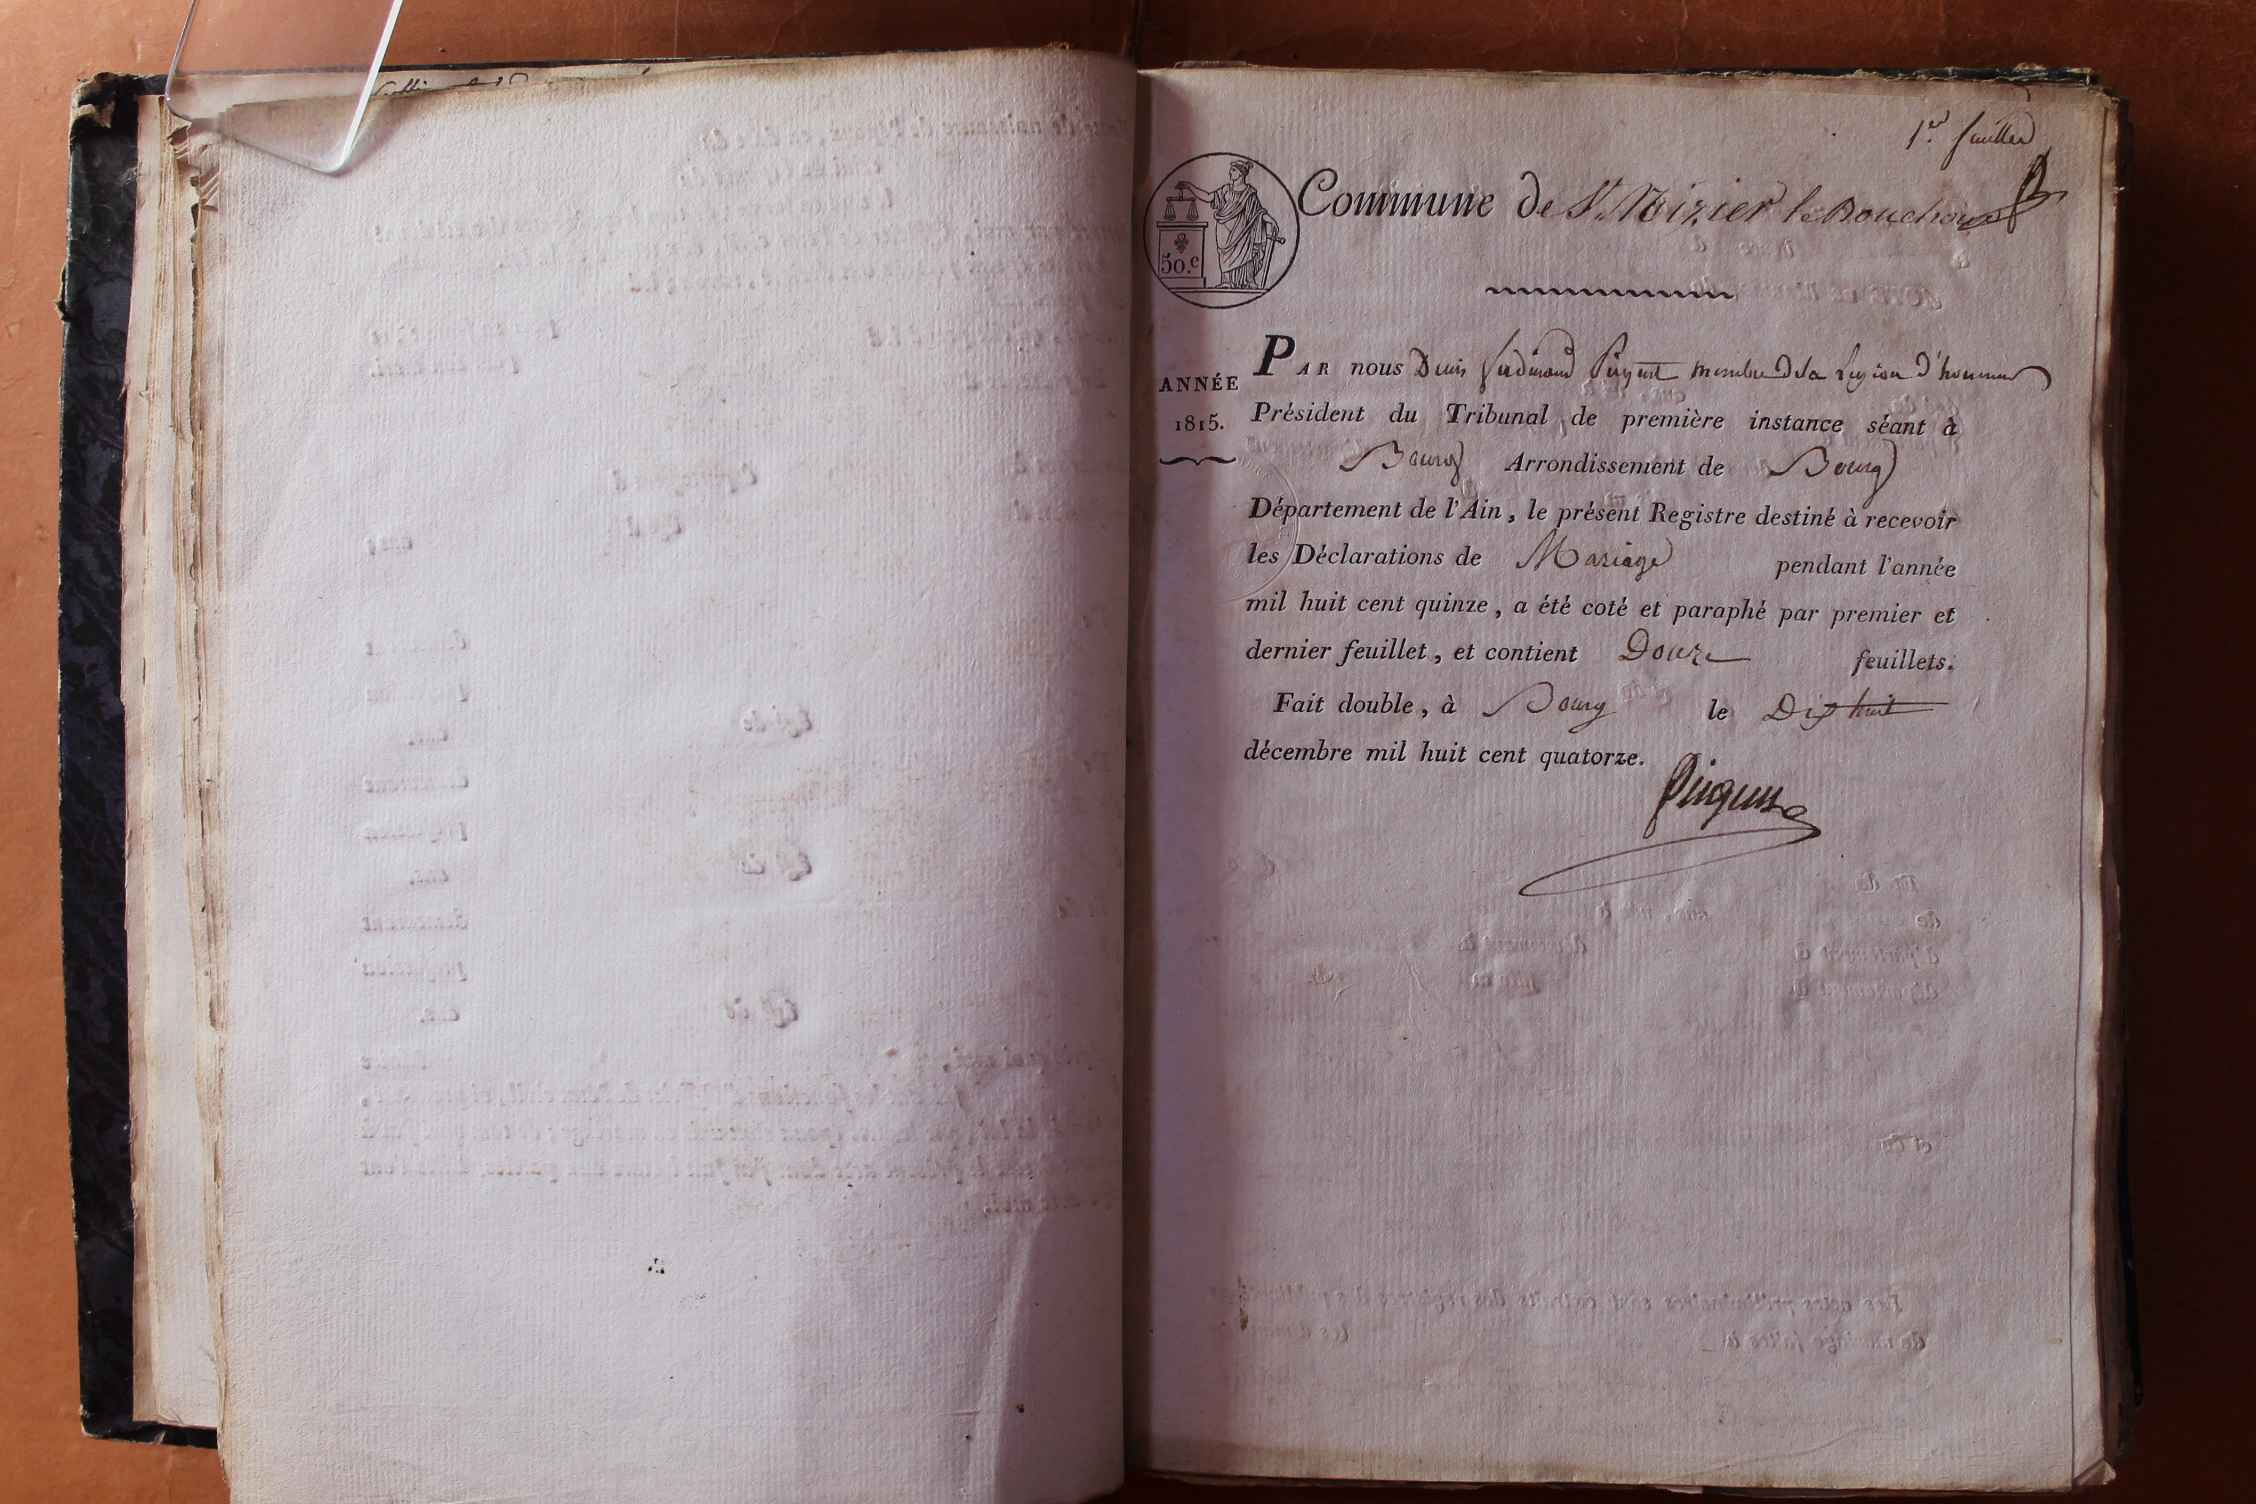 1er feuillet
Commune de St Nizier le Bouchoux
50.c
ANNÉE
1815.
PAR nous Denis ferdinand Puvis membre de la Legion d'honneur
Président du Tribunal de première instance séant à
Bourg Arrondissement de Bourg
Département de l'Ain, le présent Registre destiné à recevoir
les Déclarations de Mariage pendant l'année
mil huit cent quinze, a été coté et paraphé par premier et
dernier feuillet, et contient Douze feuillets.
Fait double, à Bourg le Dix huit
décembre mil huit cent quatorze.